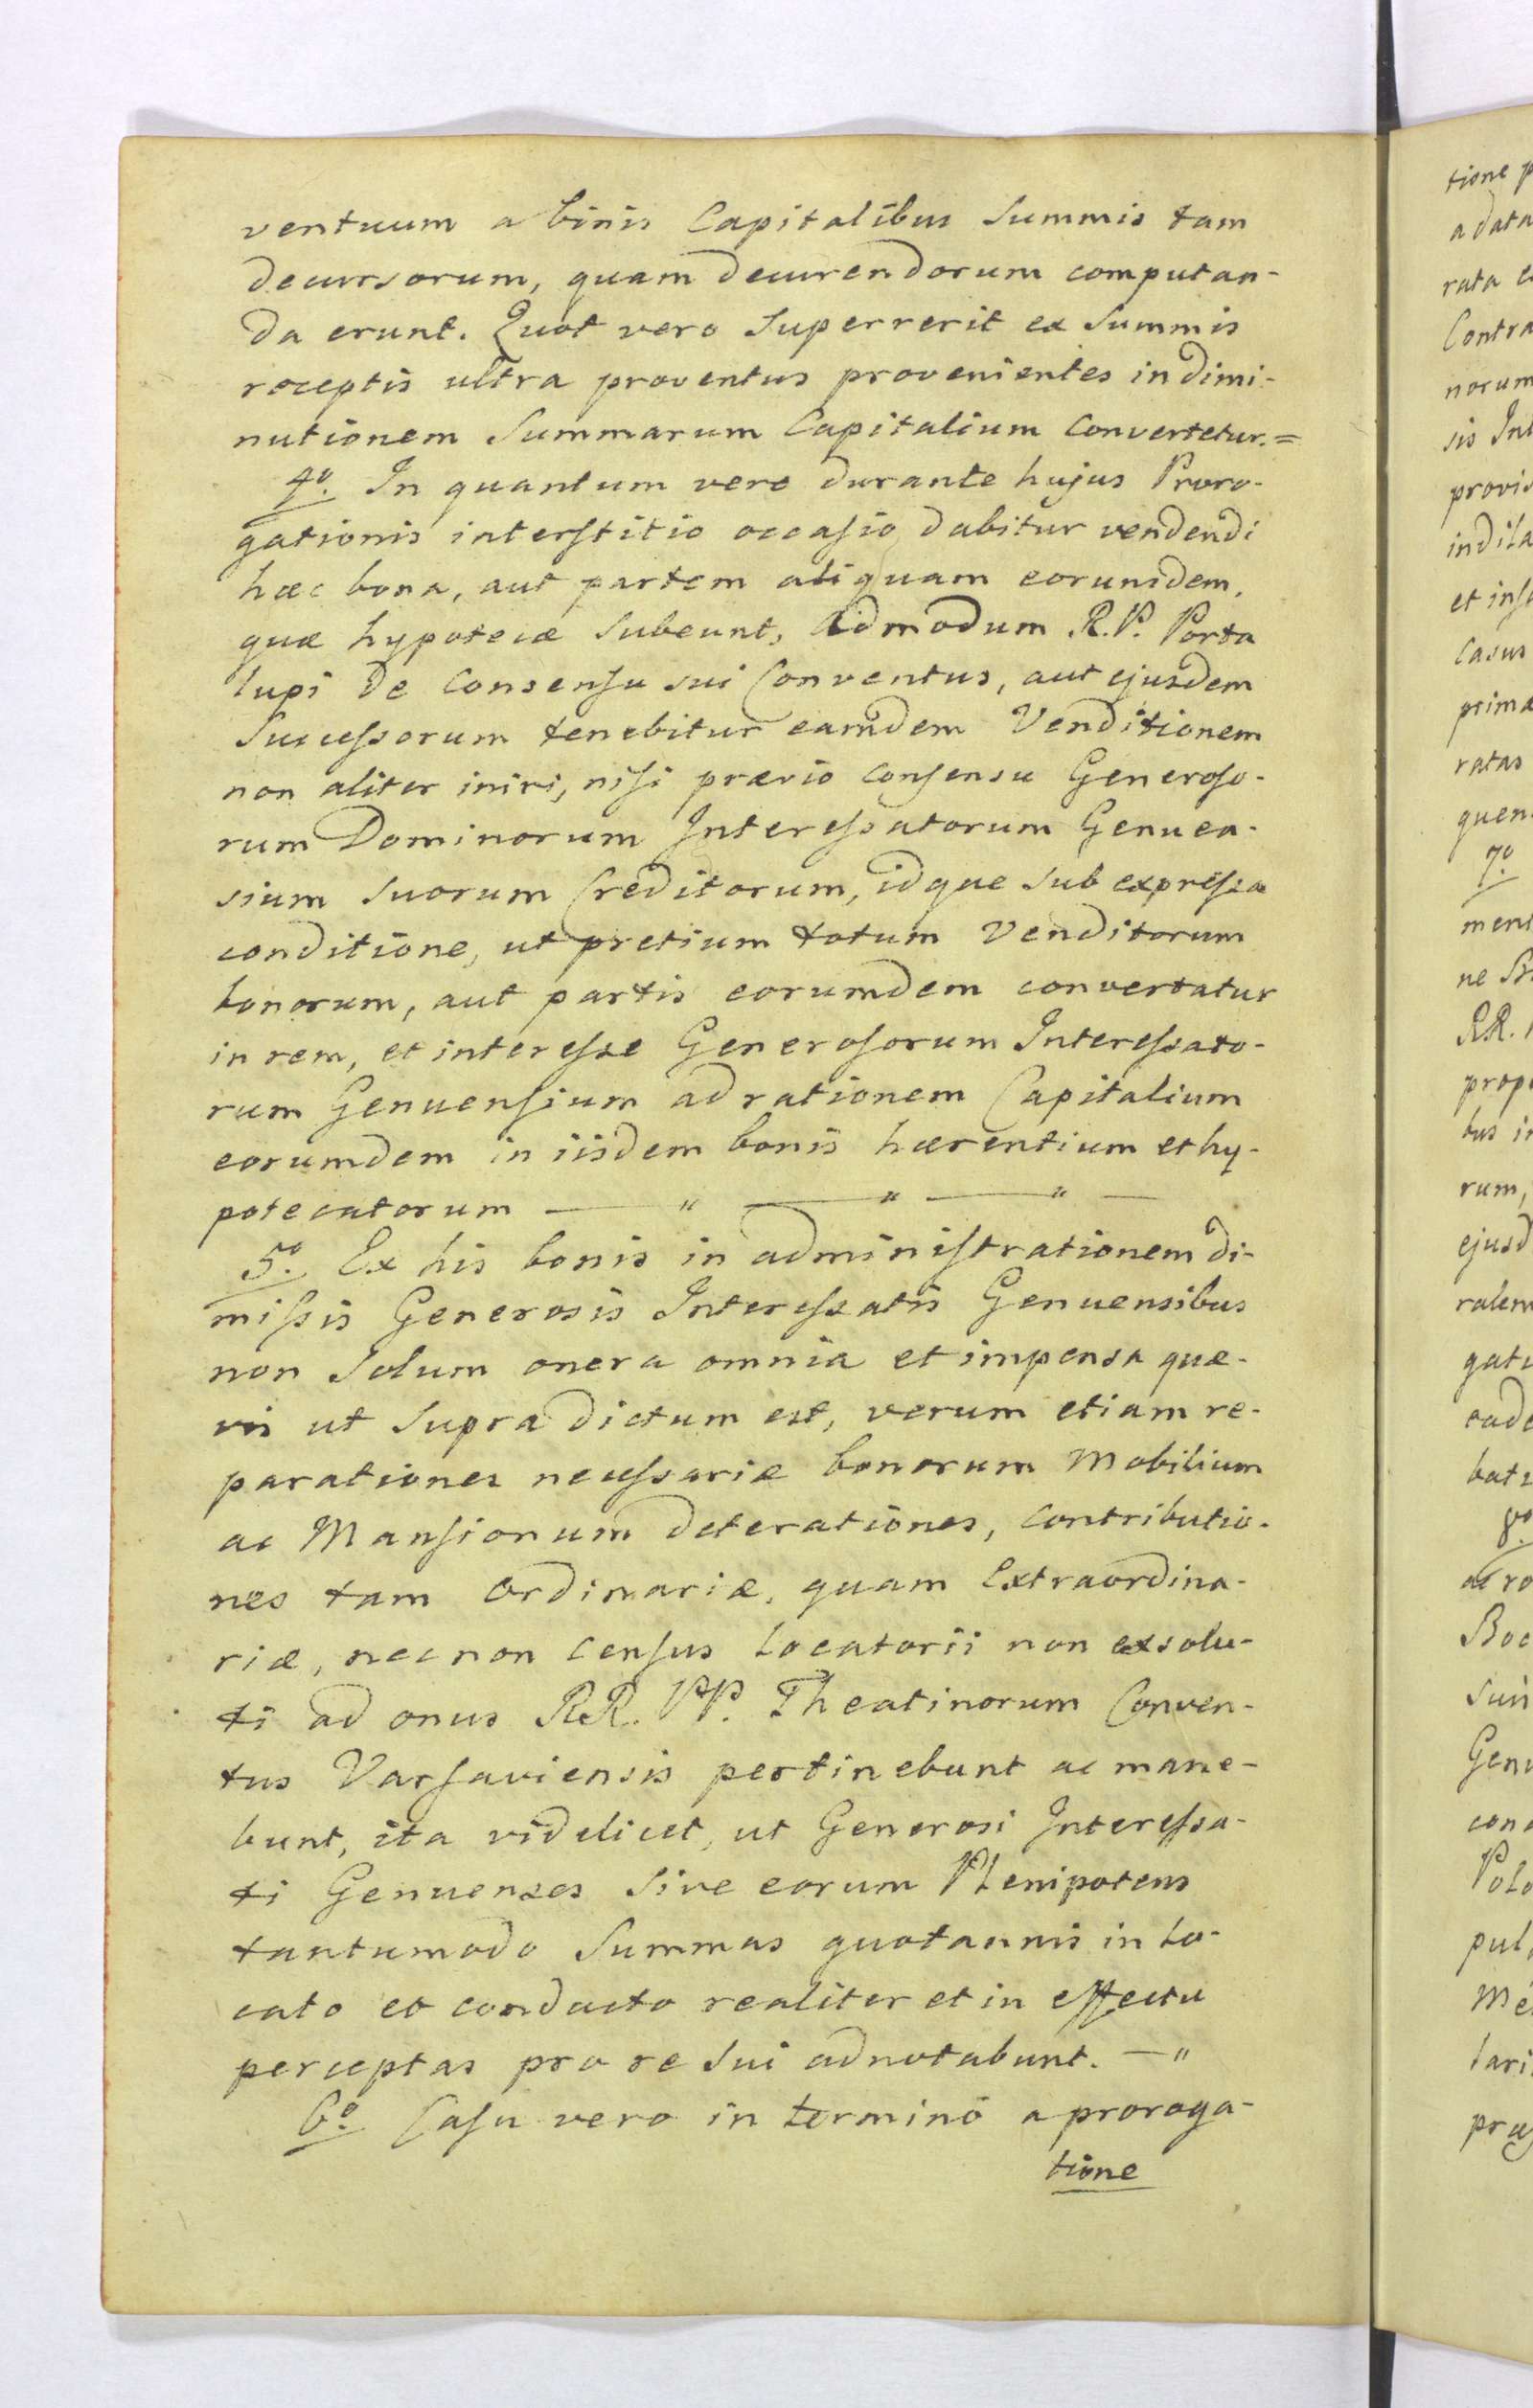 ventuum a binis Capitalibus Summis tam
decursorum, quam decurendorum computan-
da erunt. Quot vero Superrerit ex Summis
receptis ultra proventus provenientes in dimi-
nutionem Summarum Capitalium Convertetur. =
4º. In quantum vero durante hujus Proro-
gationis interstitio occasio dabitur vendendi
hæc bona, aut partem aliquam eorumdem,
quæ hypotecæ Subeunt, Admodum R. P. Porta
lupi de Consensu sui Conventus, aut ejusdem
Successorum tenebitur eamdem Venditionem
non aliter iniri, nisi prævio Consensu Generoso-
rum Dominorum Interessatorum Genuen-
sium Suorum Creditorum, idque Sub expressa
conditione, ut pretium totum Venditorum
bonorum, aut partis eorumdem convertatur
in rem, et interesse Generosorum Interessato-
rum Genuensium ad rationem Capitalium
eorumdem in iisdem bonis hærentium et hy-
potecatorum — " — " — " —
5º. Ex his bonis in administrationem di-
missis Generosis Interessatis Genuensibus
non Solum onera omnia et impensa quæ-
vis ut Supra dictum est, verum etiam re-
parationes necessariæ bonorum Mobilium
ac Mansionum deterationes, Contributio-
nes tam Ordinariæ, quam Extraordina-
riæ, nec non Census Locatorii non exsolu-
ti ad onus RR. PP. Theatinorum Conven-
tus Varsaviensis pertinebunt ac mane-
bunt, ita videlicet, ut Generosi Interessa-
ti Genuenses Sive eorum Plenipotens
tantumodo Summas quotannis in Lo-
cato et conducto realiter et in effectu
perceptas pro re Sui adnotabunt. — "
6º. Casu vero in termino a proroga-
tione
tione p
a data
rata e
Contra
norum
sis Int
provid
indila
et inst
Casus
prima
ratas
quen
7º.
ment
ne
RR.
prop
tus in
rum,
ejusd
ralem
gati
eade
bat
8º.
ac ro
Boc
Suis
Genu
con
Polo
pul
Me
lari
præ